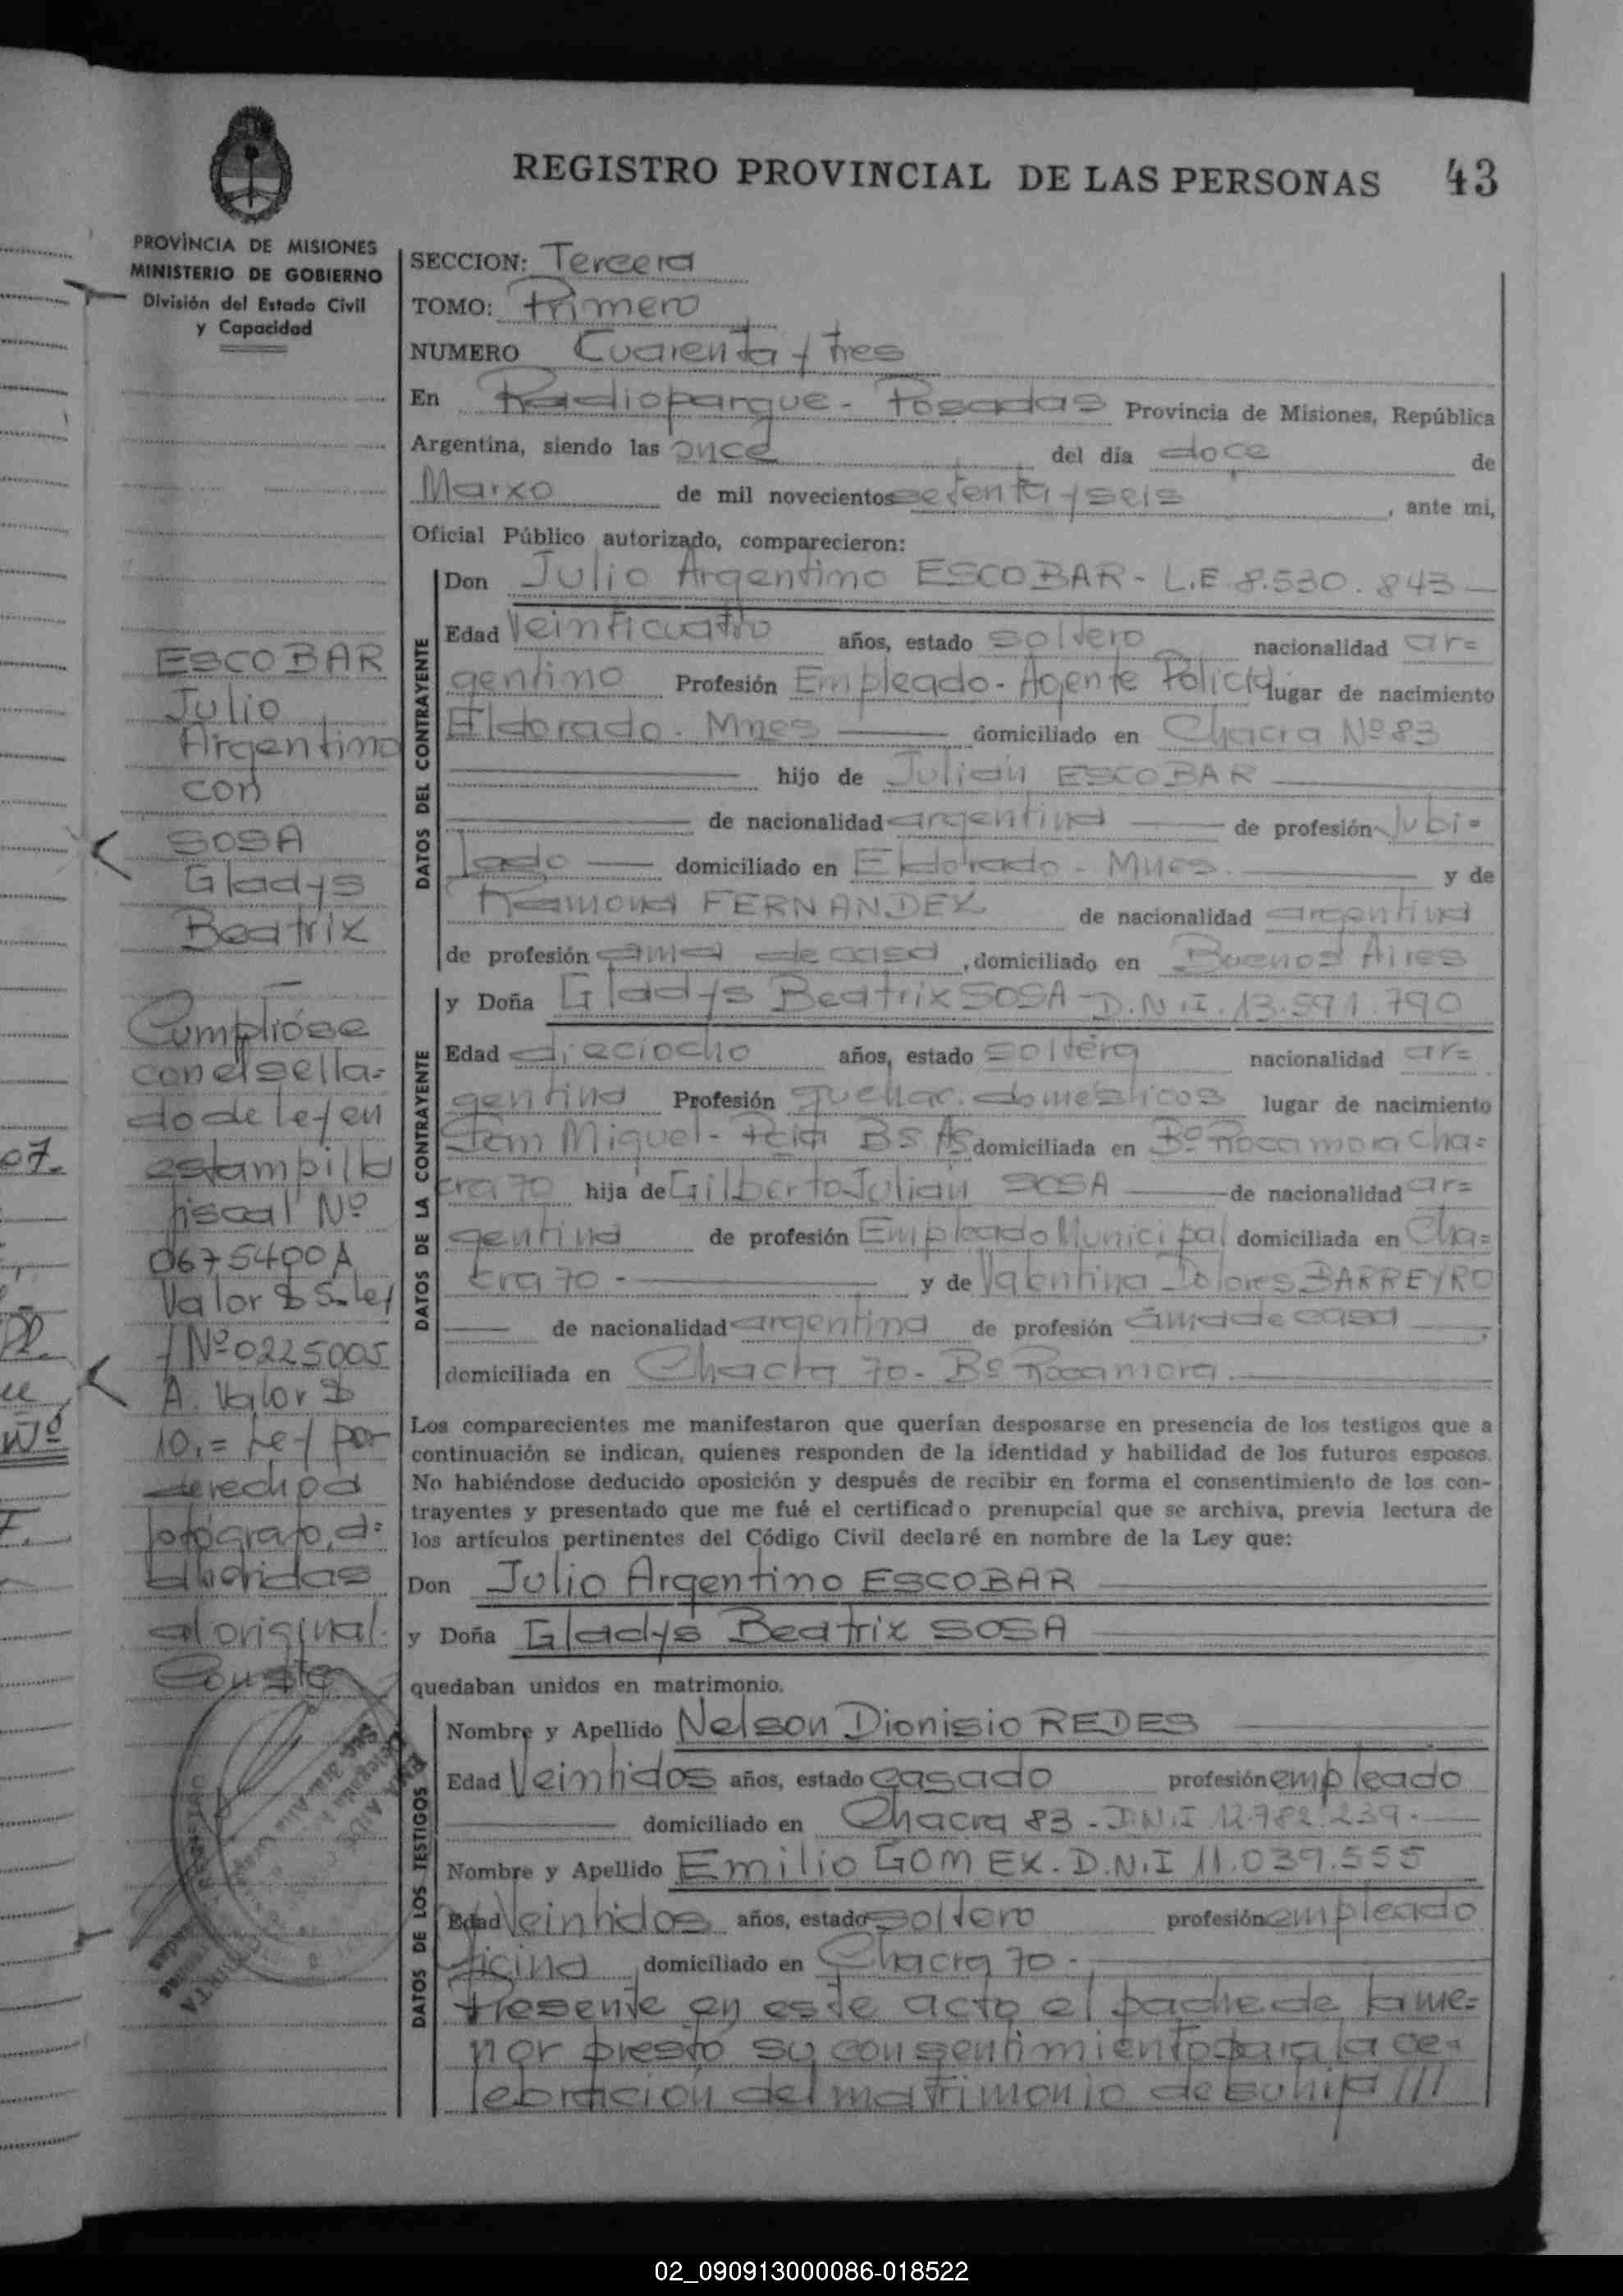 REGISTRO PROVINCIAL DE LAS PERSONAS 43
PROVINCIA DE MISIONES
MINISTERIO DE GOBIERNO
División del Estado Civil
y Capacidad
ESCOBAR
Julio
Argentino
con
SOSA
Gladys
Beatrix
Cumplióse
con el sella=
do de ley en
estampilla
fiscal Nº
0675400 A
Valor $ 5.- ley
y Nº 0225005
A. Valor $
10,= Ley por
derechos
fotógrafo, a=
dheridas
al original.
Conste
SECCION: Tercera
TOMO: Primero
NUMERO Cuarenta y tres
En Radioparque - Posadas Provincia de Misiones, República
Argentina, siendo las once del día doce de
Marxo de mil novecientos setenta y seis, ante mi,
Oficial Público autorizado, comparecieron:
DATOS DEL CONTRAYENTE
Don Julio Argentino ESCOBAR - L.E 8.530.843
Edad Veinticuatro años, estado soltero nacionalidad ar=
gentino Profesión Empleado - Agente Policia lugar de nacimiento
Eldorado - Mnes domiciliado en Chacra Nº 83
hijo de Julián ESCOBAR
de nacionalidad argentina de profesión Jubi=
lado domiciliado en Eldorado - Mnes. y de
Ramona FERNANDEX de nacionalidad argentina
de profesión ama de casa, domiciliado en Buenos Aires
DATOS DE LA CONTRAYENTE
y Doña Gladys Beatrix SOSA - D.N.I. 13.591.790
Edad dieciocho años, estado soltera nacionalidad ar=
gentina Profesión quehac. domésticos lugar de nacimiento
San Miguel - Pcia Bs. As domiciliada en Bº Rocamora Cha=
cra 70 hija de Gilberto Julián SOSA de nacionalidad ar=
gentina de profesión Empleado Municipal domiciliada en Cha=
cra 70 - y de Valentina Dolores BARREYRO
de nacionalidad argentina de profesión ama de casa,
domiciliada en Chacra 70 - Bº Rocamora.
Los comparecientes me manifestaron que querían desposarse en presencia de los testigos que a
continuación se indican, quienes responden de la identidad y habilidad de los futuros esposos.
No habiéndose deducido oposición y después de recibir en forma el consentimiento de los con-
trayentes y presentado que me fué el certificado prenupcial que se archiva, previa lectura de
los artículos pertinentes del Código Civil declaré en nombre de la Ley que:
Don Julio Argentino ESCOBAR
y Doña Gladys Beatrix SOSA
quedaban unidos en matrimonio.
DATOS DE LOS TESTIGOS
Nombre y Apellido Nelson Dionisio REDES
Edad Veintidos años, estado casado profesión empleado
domiciliado en Chacra 83 - D.N.I 12.782.239.
Nombre y Apellido Emilio GOMEX. D.N.I 11.039.555
Edad Veintidos años, estado soltero profesión empleado
oficina domiciliado en Chacra 70 -
Presente en este acto el padre de la me=
nor prestó su consentimiento para la ce=
lebración del matrimonio de su hija ///
02_090913000086-018522